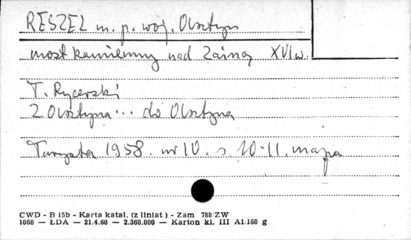 RESZEL m. p. woj. Olsztyn
most kamienny nad Zainą XVI w.
T. Rycerski
Z Olsztyna... do Olsztyna
Turysta 1958. nr 10. s 10-11. mapa
CWD - B 15b - Karta katal. (z liniat.) - Zam 788/ZW
1060 — ŁDA — 21.4.60 — 2.360.000 — Karton kl. III A1.160 g